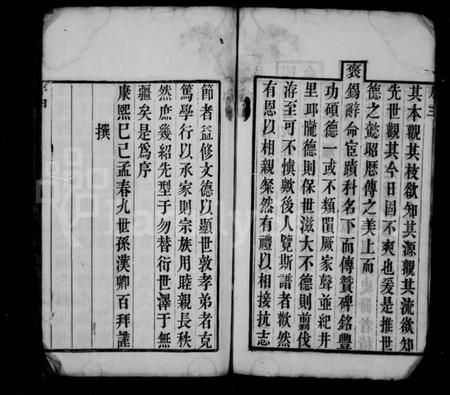 其本觀其枝欲知其源觀其流欲知
先世觀其今日固不爽也爰是推世
德之懿昭歷傳之美上而
褒錫辭命宦蹟科名下而傳贊碑銘豐
功碩德一或不類隕厥家聲並紀井
里耶隴德則保世滋大不德則翦伐
洊至可不慎歟後人覽斯譜者歉然
有恩以相親粲然有禮以相接抗志
節者益修文德以顯世敦孝弟者克
篤學行以承家則宗族用睦親長秩
然庶幾紹先型于勿替衍世澤于無
疆矣是為序
康熙己巳孟春九世孫漢卿百拜謹
撰